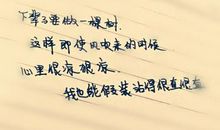 下辈子要做一棵树
这样即使风吹来的时候
心里很痛很痛
我也能假装站得很直很直